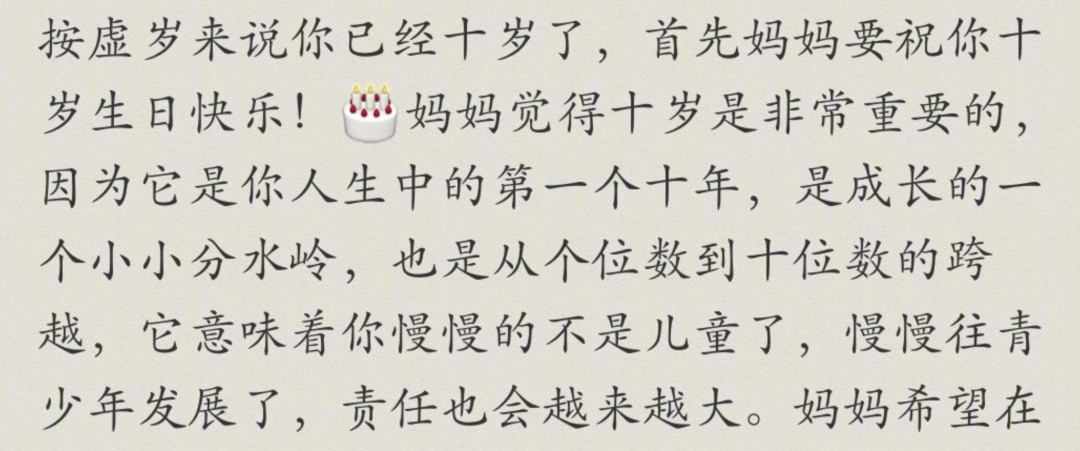 按虚岁来说你已经十岁了，首先妈妈要祝你十
岁生日快乐！🎂妈妈觉得十岁是非常重要的，
因为它是你人生中的第一个十年，是成长的一
个小小分水岭，也是从个位数到十位数的跨
越，它意味着你慢慢的不是儿童了，慢慢往青
少年发展了，责任也会越来越大。妈妈希望在